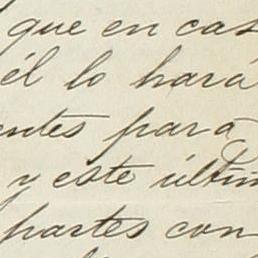 que en cas
él lo hará
entes para
y este últim
partes con